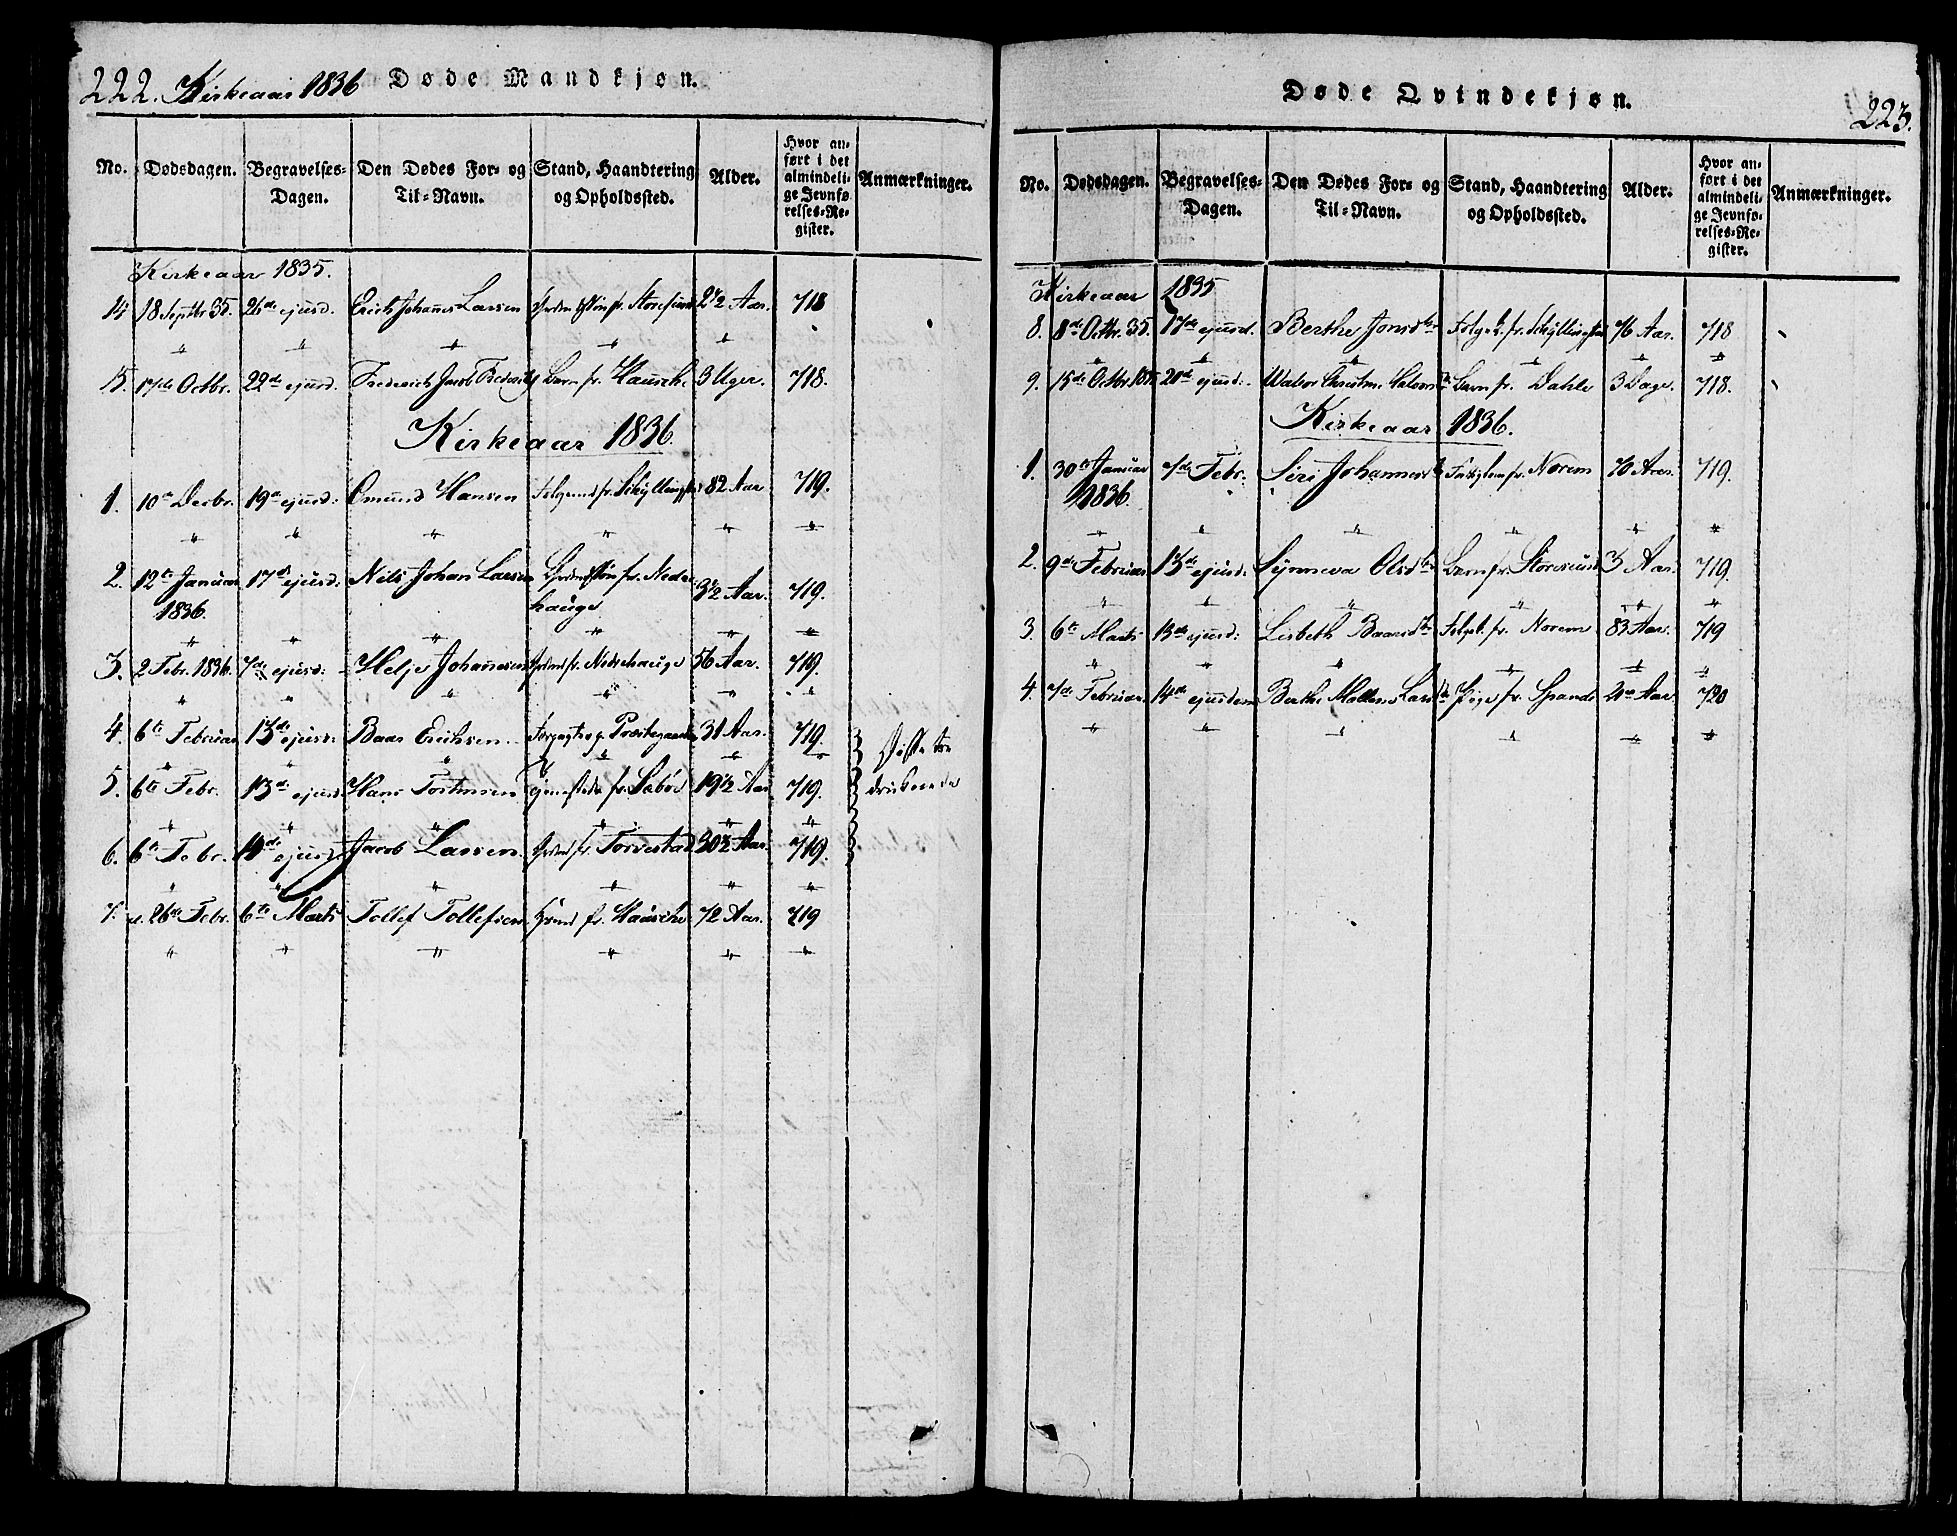 222. Kirkeaar 1836 Døde Mandkjøn.
No. Dødsdagen. Begravelses-Dagen. Den Dødes For- og Til-Navn. Stand, Haandtering og Opholdssted. Alder. Hvor anført i det almindelige Jevnførelses-Register. Anmærkninger.
Kirkeaar 1835.
14 18 Septbr 35. 26de ejusd. Erich Johannes Larsen fr. Storesund 2½ Aar. 718
15. 17de Octbr. 22de ejusd. Frederich Jacob Barn fr. Hausche 3 Uger. 718.
Kirkeaar 1836.
1. 10de Decbr. 19de ejusd: Omund Hansen fr. 82 Aar 719.
2. 12te Januar 17de ejusd: Nils Johan Larsen fr. Neder
1836. hauge 3½ Aar. 719.
3. 2 Febr. 1836. 7de ejusd: Helje Johannesen fr. Nedrehauge 56 Aar. 719.
4. 6te Februar 13de ejusd: Baar Erichsen 31 Aar. 719. Disse tre
5. 6te Febr. 13de ejusd Hans Tostensen fr. Sæbøe 19½ Aar 719. druknede
6. 6te Febr. 14de ejusd. Jacob Larsen fr. Torvestad 30½ Aar. 719.
7. 26de Febr. 6te Marts Tollef Tollefsen fr. Hausche 72 Aar. 719
Døde Qvindekjøn. 223.
No. Dødsdagen. Begravelses-Dagen. Den Dødes For- og Til-Navn. Stand, Haandtering og Opholdssted. Alder. Hvor anført i det almindelige Jevnførelses-Register. Anmærkninger.
Kirkeaar 1835
8. 8de Octbr. 35. 17de ejusd. Berthe Jonsdtr fr. 76 Aar. 718
9. 15de Octbr. 20de ejusd. Barn fr. Dahle 3 Dage. 718.
Kirkeaar 1836.
1. 30te Januar 7de Febr. Siri Johannesdtr fr. Norem 70 Aar. 719.
1836.
2. 9de Februar 13de ejusd: Synneva Olsdtr Barn fr. Storesund 3 Aar. 719.
3. 6te Marts 13de ejusd: Lisbeth Baarsdtr fr. Norem 83 Aar. 719
4. 7de Februar 14de ejusdem Berthe Larsdtr Pige fr. Spande Aar. 720